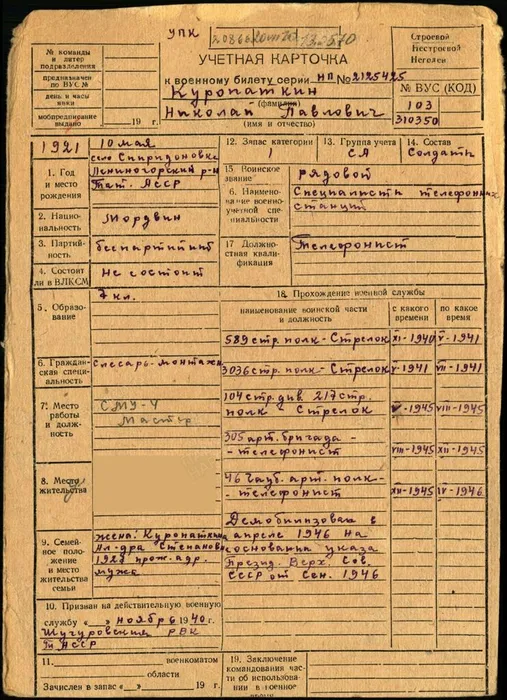 УПК
№ команды
и литер
подразделения
предназначен
по ВУС №
день и часы
явки
мобпредписание
выдано 19 г.
УЧЕТНАЯ КАРТОЧКА
к военному билету серии НП № 2125425
Куропаткин
(фамилия)
Николай Павлович
(имя и отчество)
Строевой
Нестроевой
Негоден
№ ВУС (КОД)
103
310350
1921
10 мая
село Спиридоновка
Лениногорский р-н
Тат. АССР
1. Год
и место
рождения
2. Нацио-
нальность
Мордвин
3. Партий-
ность
беспартийный
4. Состоит
ли в ВЛКСМ
не состоит
12. Запас категории
1
13. Группа учета
СА
14. Состав
Солдаты
15 Воинское
звание
рядовой
6. Наимено-
вание военно-
учетной спе-
циальности
Специалисты телефонных
станций
17 Должност-
ная квали-
фикация
Телефонист
5. Образо-
вание
7 кл.
6. Граждан-
ская специ-
альность
Слесарь-монтажн
7. Место
работы
и долж-
ность
СМУ-4
Мастер
8. Место
жительства
9. Семей-
ное поло-
жение
и место
жительства
семьи
жена: Куропаткина
Ал-дра Степановн
1927 прож. адр.
мужа
18. Прохождение военной службы
наименование воинской части
и должность
с какого
времени
по какое
время
589 стр. полк - Стрелок XI-1940 V-1941
3036 стр. полк - Стрелок V-1941 VIII-1941
104 стр. див. 217 стр.
полк - Стрелок V-1945 VIII-1945
305 арт. бригада -
- телефонист VIII-1945 XII-1945
46 гауб. арт. полк -
- телефонист XII-1945 IV-1946
Демобилизован в
апреле 1946 На
основании указа
Презид. Верх. Сов.
СССР от Сен. 1946
10. Призван на действительную военную
службу «__» ноябрь 1940 г.
Шугуровским РВК
Т АССР
11. военкоматом
области
Зачислен в запас «__» 19 г.
19. Заключение
командования час-
ти об использова-
нии в военное